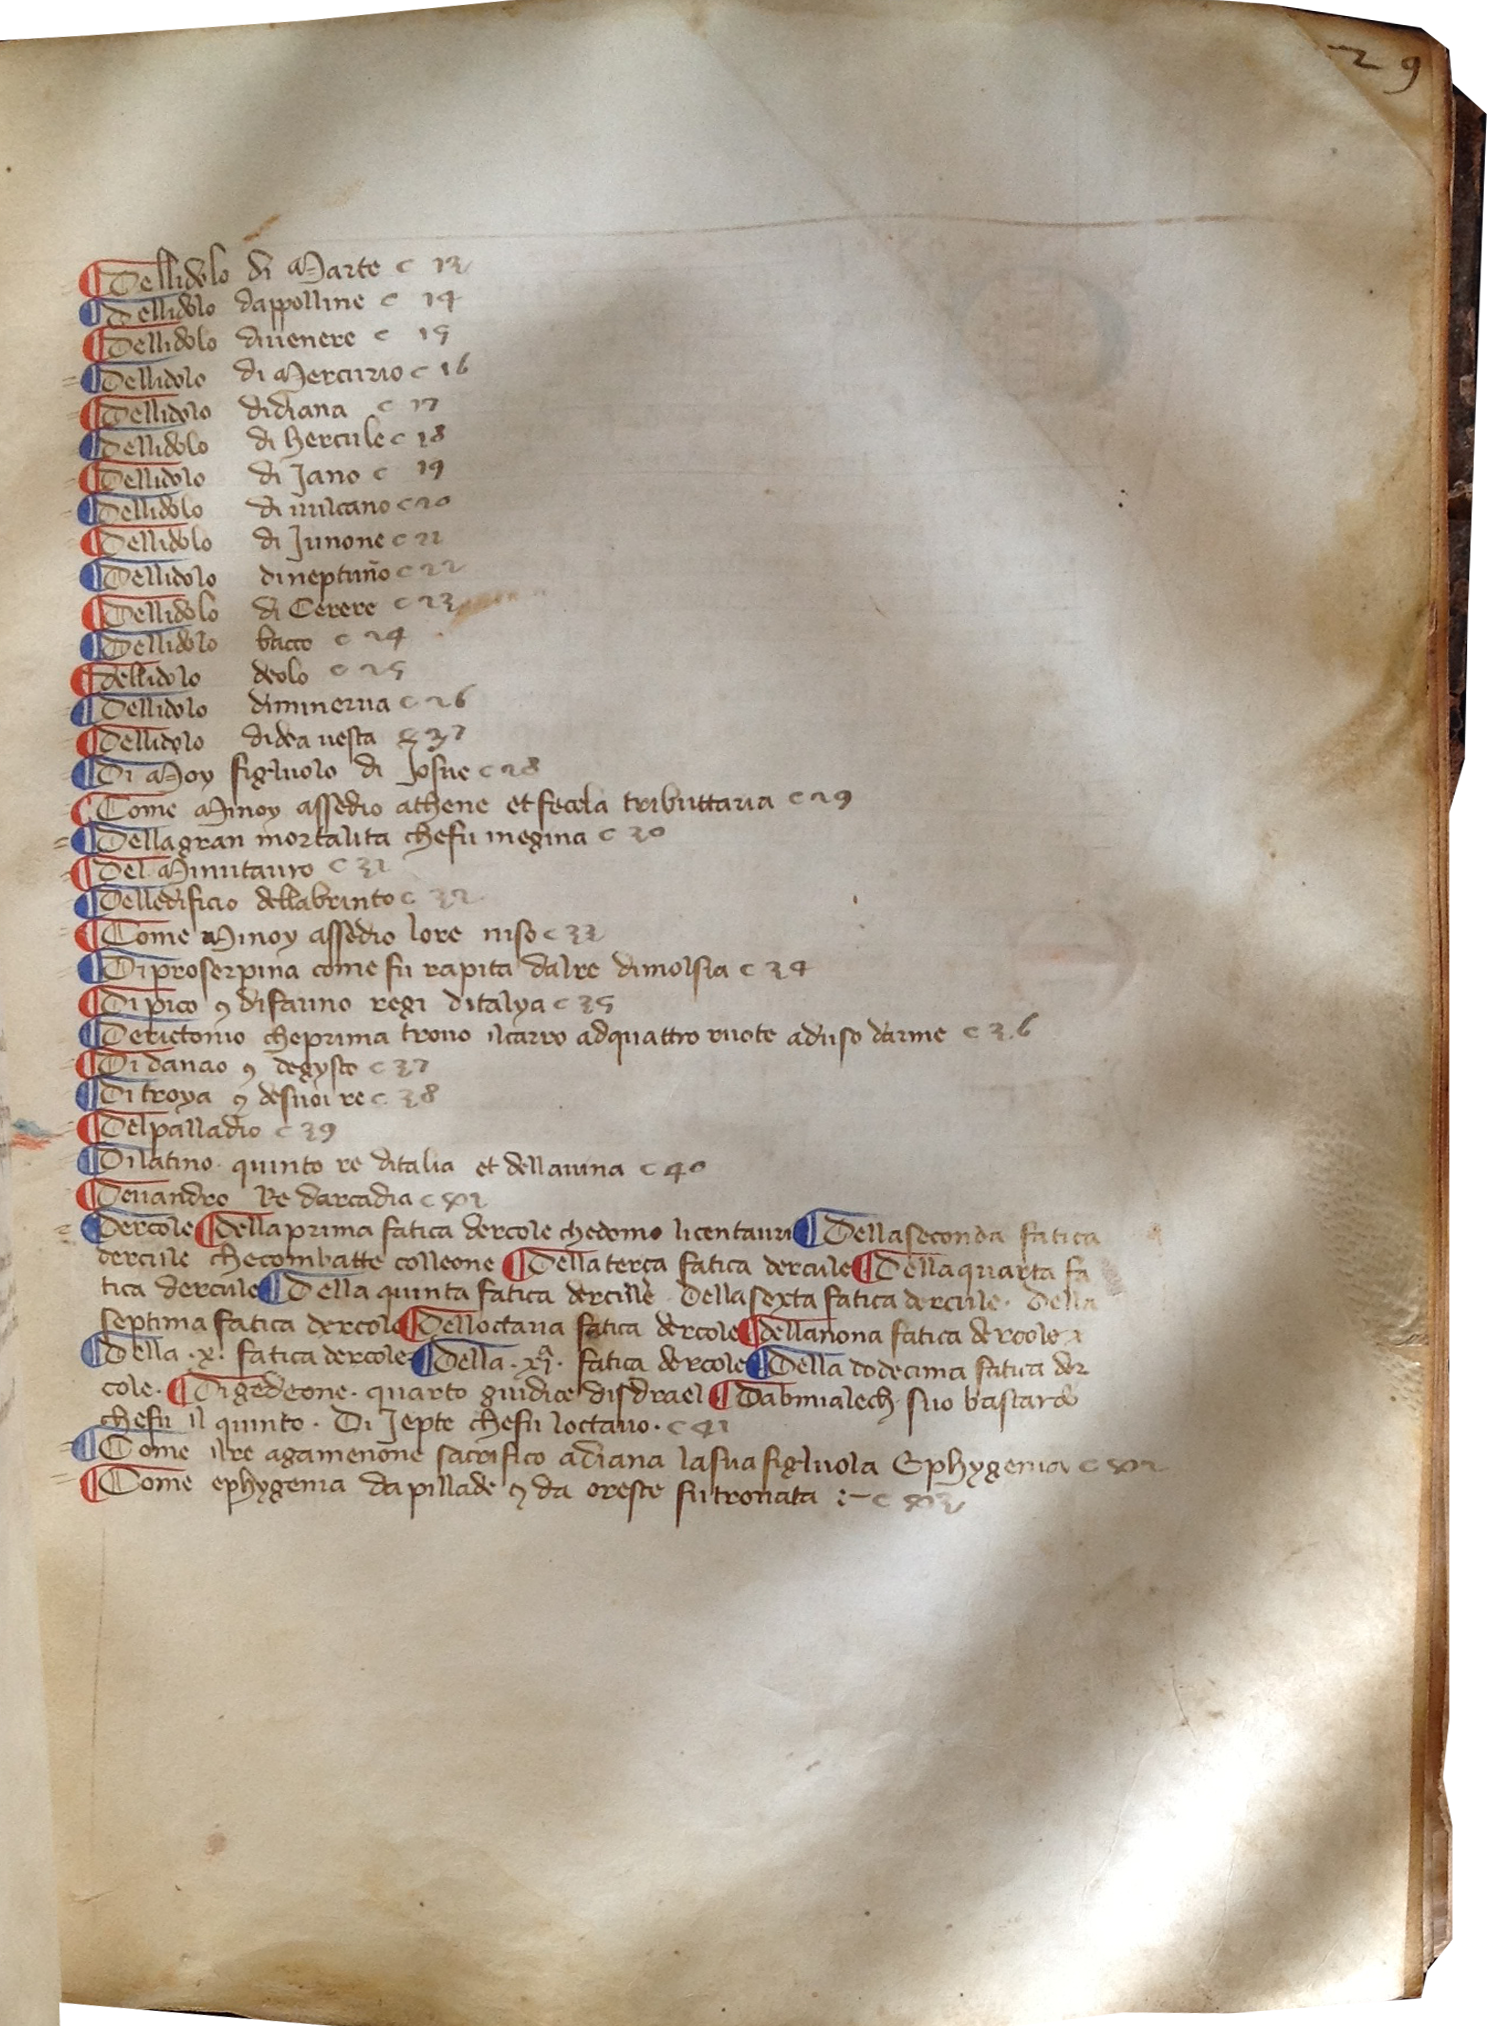 29
¶ Dellidolo di Marte c 13
¶ Dellidolo dappolline c 14
¶ Dellidolo diuenere c 15
¶ Dellidolo di Mercurio c 16
¶ Dellidolo didiana c 17
¶ Dellidolo di hercule c 18
¶ Dellidolo di Jano c 19
¶ Dellidolo di uulcano c 20
¶ Dellidolo di Junone c 21
¶ Dellidolo di neptuño c 22
¶ Dellidolo di Cerere c 23
¶ Dellidolo bacco c 24
¶ dellidolo deolo c 25
¶ Dellidolo diminerua c 26
¶ Dellidolo didea uesta c 27
¶ Di Moy figluolo di Josue c 28
¶ Come Minoy assedio athene et fecela tributtaria c 29
¶ Dellagran mortalita chefu inegina c 30
¶ Del Minutauro c 31
¶ Delledificio dellabrinto c 32
¶ Come Minoy assedio lore niso c 33
¶ Di proserpina come fu rapita dalre dimolsia c 34
¶ Di pico ⁊ difauno regi ditalya c 35
¶ Derictonio cheprima trouo ilcarro adquattro ruote aduso darme c 36
¶ Di danao ⁊ degysto c 37
¶ Di troya ⁊ desuoi re c 38
¶ Delpalladio c 39
¶ Dilatino quinto re ditalia et dellauina c 40
¶ Deuandro Re darcadia c
¶ Dercole ¶ della prima fatica dercole chedomo licentauri ¶ Della seconda fatica
dercule checombatte colleone ¶ Della terça fatica dercule ¶ Della quarta fa
tica dercule ¶ Della quinta fatica dercule Della sexta fatica dercule. Della
septima fatica dercole ¶ Delloctaua fatica dercole ¶ della nona fatica dercole
¶ Della .x. fatica dercole ¶ Della .xjª. fatica dercole ¶ Della dodecima fatica der
cole. ¶ Di gedeone. quarto giudice disdrael ¶ Dabmialech suo bastardo
chefu il quinto. Di Jepte chefu loctauo. c 41
¶ Come ilre agamenone sacrifico adiana lasua figluola Ephygenia c
¶ Come ephygenia da pillade ⁊ da oreste fu trouata :~ c